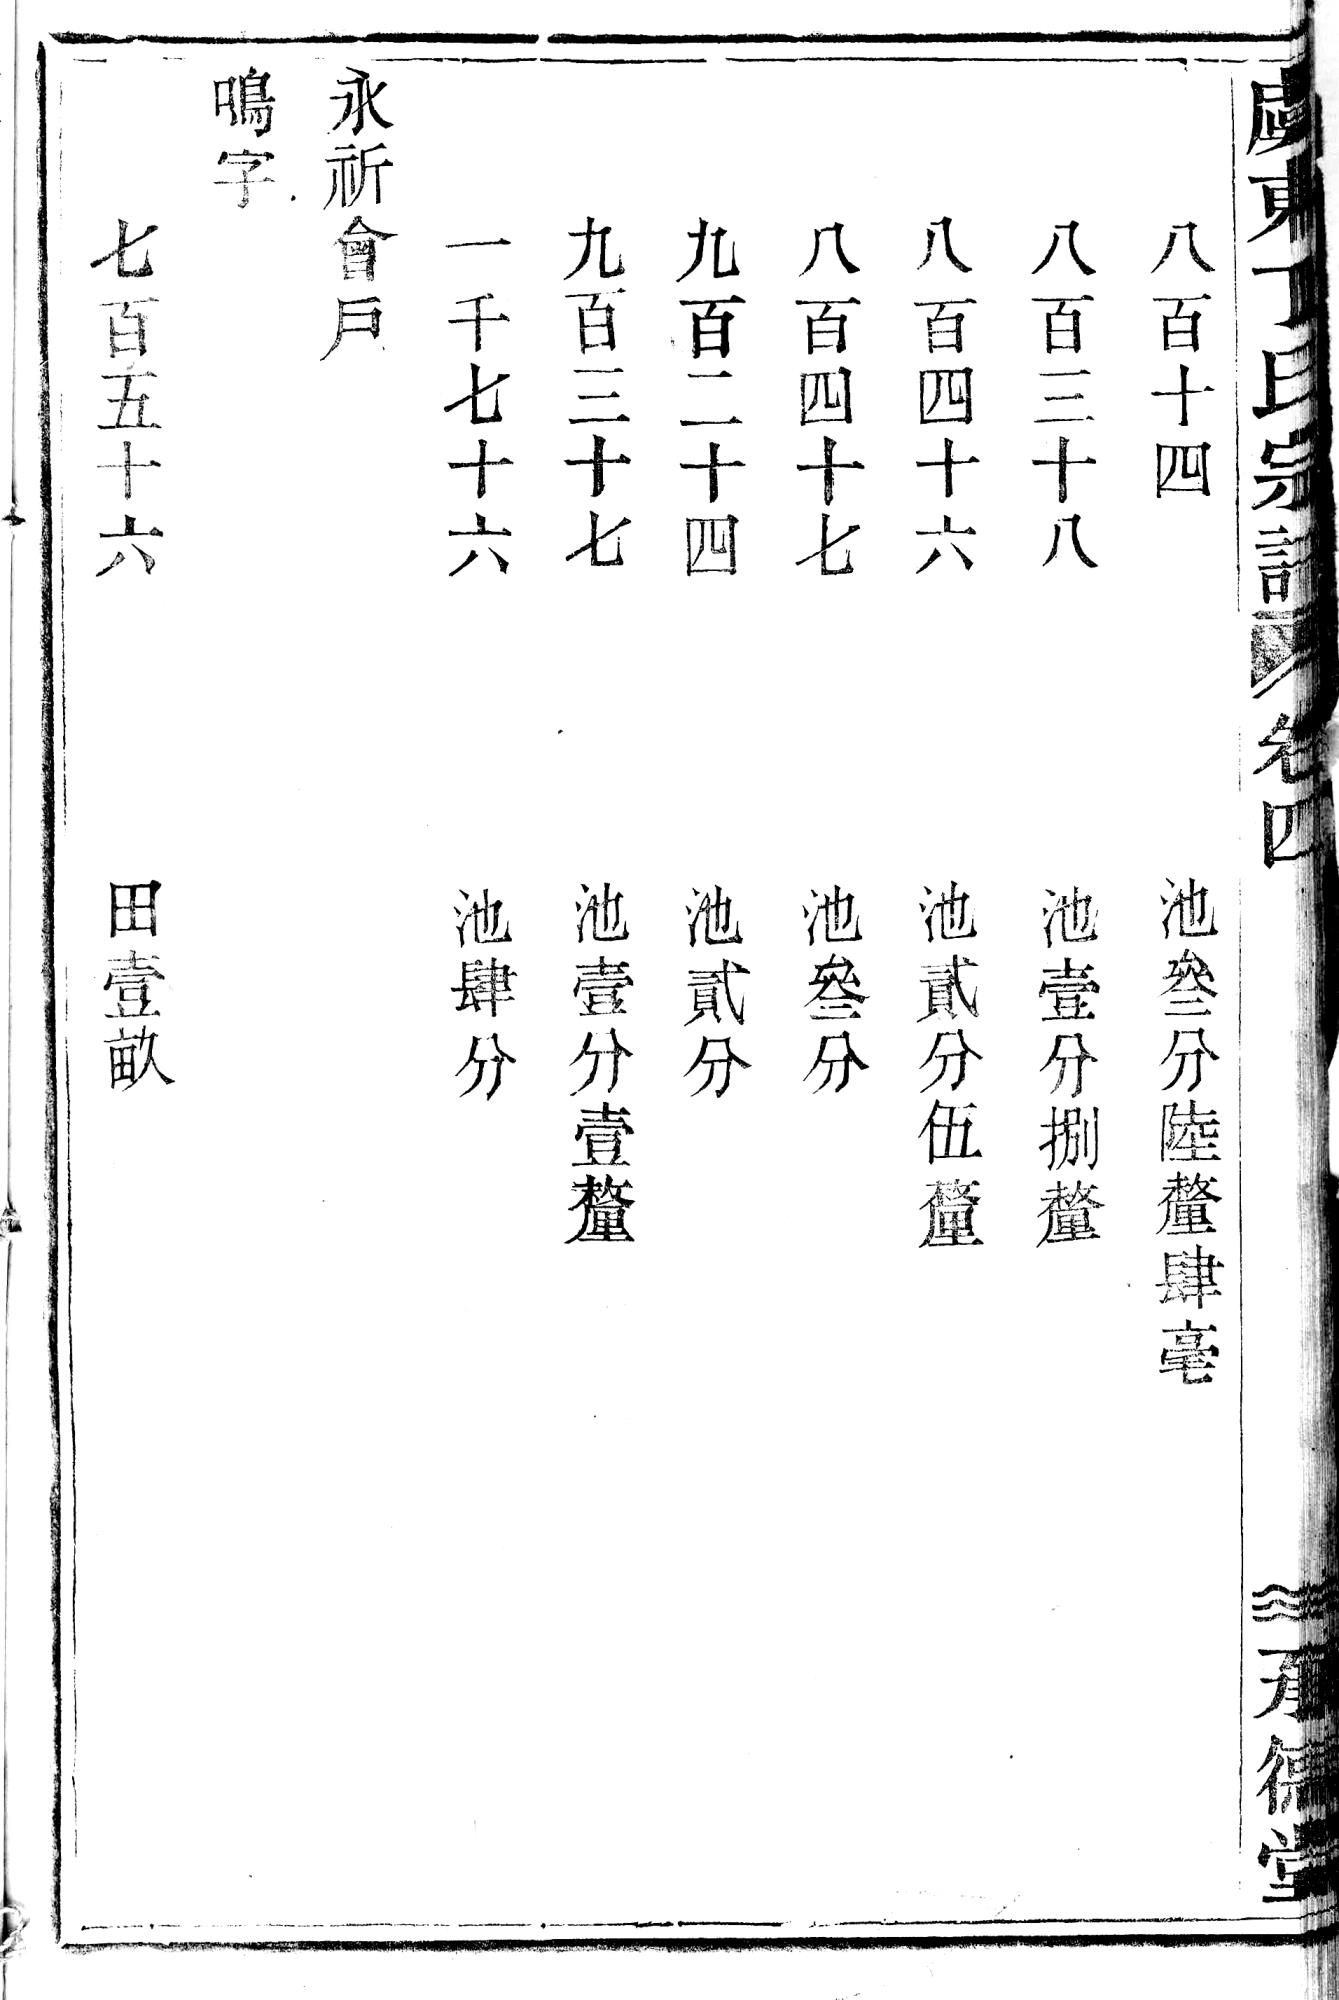 虞東丁氏宗譜 卷四 承德堂
八百十四 池叄分陸釐肆毫
八百三十八 池壹分捌釐
八百四十六 池貳分伍釐
八百四十七 池叄分
九百二十四 池貳分
九百三十七 池壹分壹釐
一千七十六 池肆分
永祈會戶
鳴字
七百五十六 田壹畝